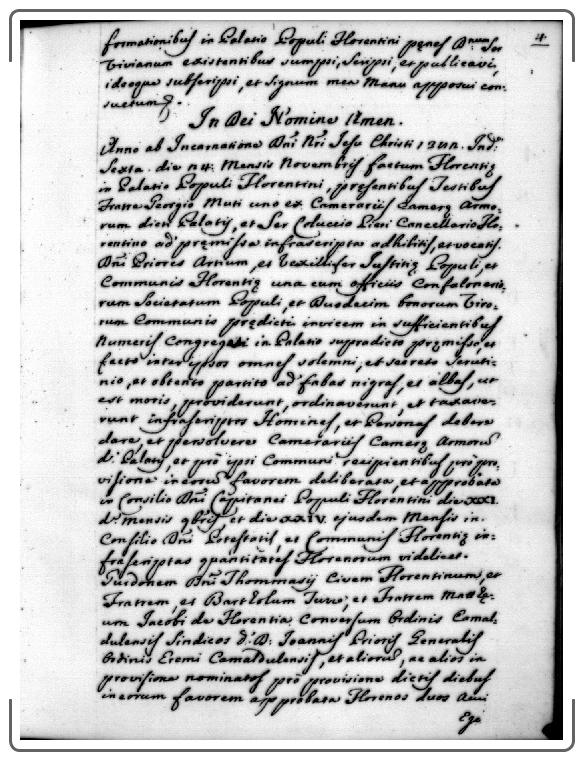 4
formationibus in Palatio Populi Florentini penes Dnum Ser
Vivianum existentibus sumpsi, scripsi, et publicavi,
ideoque subscripsi, et signum mea Manu apposui con:
suetum.
In Dei Nomine Amen.
Anno ab Incarnatione Dni Nri Iesu Christi Ind:
Sexta. die Mensis Novembris factum Florentię
in Palatio Populi Florentini, presentibus Testibus
Fratre Georgio Muti uno ex Camerariis Camerę Armo:
rum dicti Palatij, et Ser Coluccio Pieri Cancellario Flo:
rentino ad pręmissa infrascripta adhibitis, et vocatis.
Dni Priores Artium, et Vexillifer Iustitię Populi, et
Communis Florentię una cum officiis Confalonerio:
rum Societatum Populi, et Duodecim bonorum Viro:
rum Communis prędicti invicem in sufficientibus
Numeris Congregati in Palatio supradicto pręmisso, et
facto inter ipsos omnes solemni, et secreto scruti:
nio, et obtento partito ad fabas nigras, et albas, ut
est moris, providerunt, ordinaverunt, et taxave:
runt infrascriptos Homines, et Personas debere
dare, et persolvere Camerariis Camerę Armorum
di Palatij, et prò ipsi Communi recipientibus prò pro,
visione in eorum favorem deliberata, et approbata
in Consilio Dni Capitanei Populi Florentini die XXI.
di mensis 9bris, et die XXIV. ejusdem Mensis in.
Consilio Dni Potestatis, et Communis Florentię in:
frascriptas quantitates Florenorum videlicet.
Guidonem Dni Thommasij Civem Florentinum, et
Fratrem, et Bartholum et Fratrem Mattę:
um Iacobi de Florentia Conversum Ordinis Camal:
dulensis Sindicos d: D: Ioannis Prioris Generalis
Ordinis Eremi Camaldulensis, et aliorum, ac alios in
provisione nominatos prò provisione dictis diebus
in eorum favorem approbata Florenos duos Auri
Ego